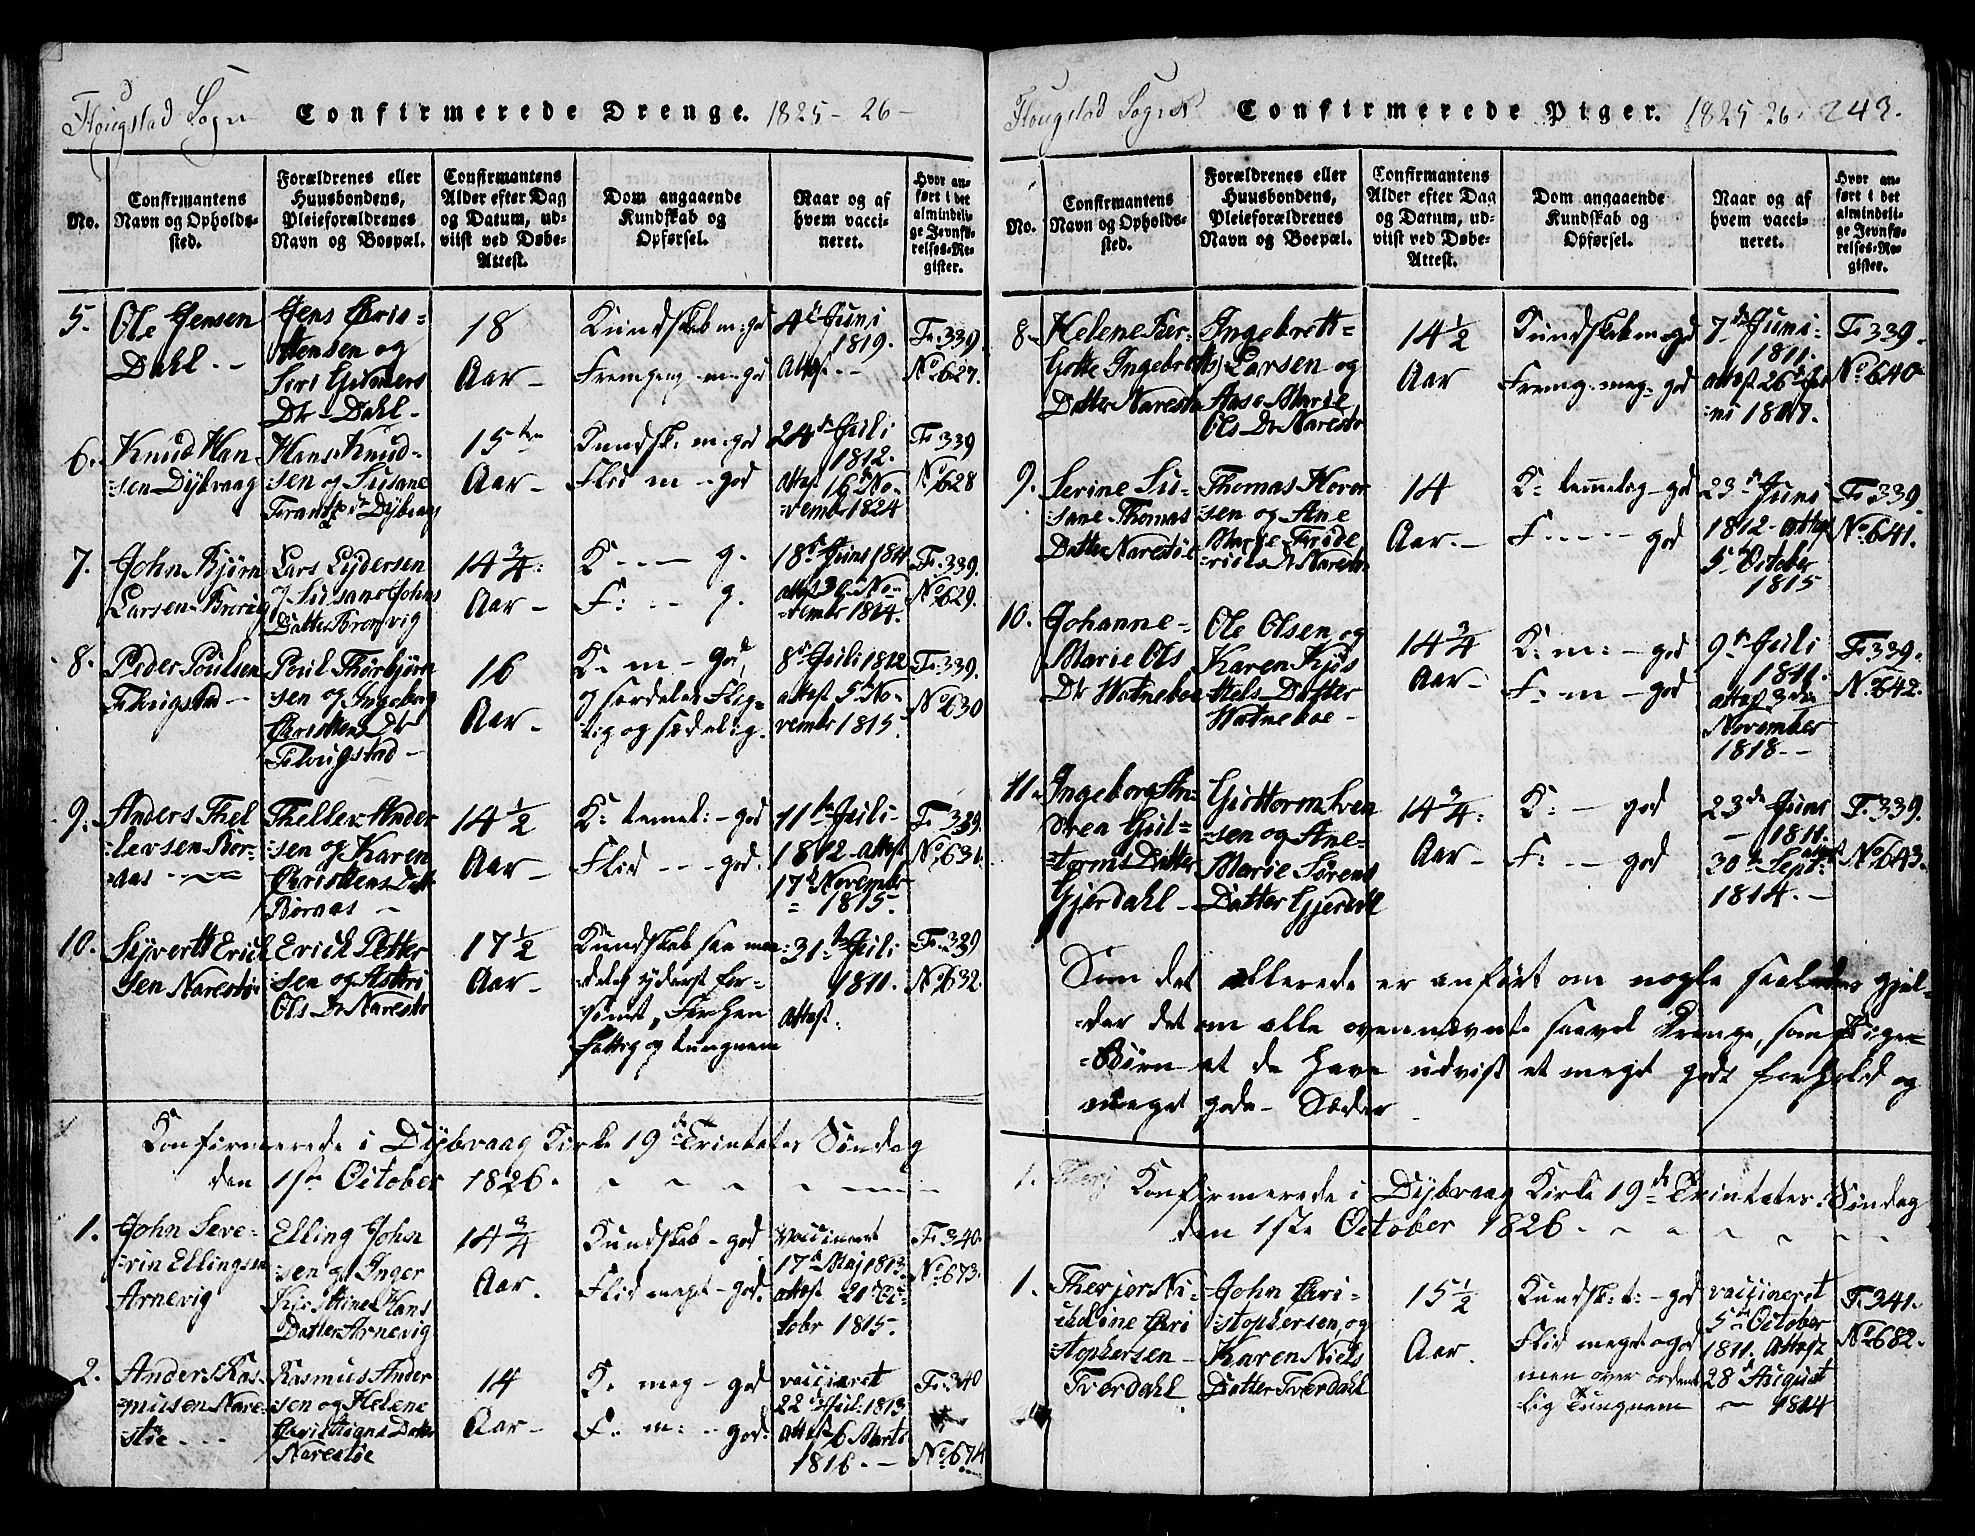 Flougstad Sogn Confirmerede Drenge. 1825 - 26 -
No.
Confirmantens
Navn og Opholds-
sted.
Forældrenes eller
Huusbondens,
Pleieforældrenes
Navn og Boepæl.
Confirmantens
Alder efter Dag
og Datum, ud-
viist ved Døbe-
Attest.
Dom angaaende
Kundskab og
Opførsel.
Naar og af
hvem vacci-
neret.
Hvor an-
ført i det
almindeli-
ge Jevnfø-
relses-Re-
gister.
5.
Ole Jensen
Dahl. - -
Jens Chris=
stensen og
Siri Gunners
Dr - Dahl -
18
Aar -
Kundskab m: god
Fremgang - m - god
4de Juni
1819.
Attest. - -
F: 339.
No 627.
6.
Knud Han
sen Dybvaag
Hans Knud-
sen og Susane
Frants Dr Dybvaag
15ten
Aar -
Kundsk: m: god
Flid m - god
24de Juli
1812.
attest 16de No-
vember 1824
F: 339
No 628
7.
John Bjørn
Larsen Brovig
Lars Lydersen
og Susane Johns
Datter Bronsvig
14 3/4:
Aar -
K. - - - g.
F: - - g.
18de Juni 1811
attest No-
vember 1814.
F: 339.
No 629.
8.
Peder Poulsen
Flougstad -
Poul Thorbjørn
sen og Ingeborg
Christens Dr
Flougstad -
16
Aar -
K. m - god,
og særdeles Flig-
tig og sædelig.
8de Juli 1812
attest 5te No-
vember 1815.
F: 339.
No 630
9.
Anders Thel
lefsen Bor-
aas - - -
Thellev Ander
sen og Karen
Christens Datt
Boraas -
14 1/2
Aar -
K: temel: - god
Flid - - - god.
11te Juli -
1812 - attest
17de November
1815.
F: 339.
No 631.
10.
Syvertt Erich
sen Narestø
Erich Petter
sen og Astri
Ols Dr Narestø
17 1/2
Aar -
Kundskab saa maa=
delig yderst for-
sømt, Før hen
fattig og tungnem
31te Juli
1811.
Attest:
F: 339
No 632.
Konfirmerede i Dybvaag Kirke 19de Trinitates Søndag
den 1ste October 1826.
1.
John Seve-
rin Ellingsen
Arnevig
Elling John
sen og Inger
Kjerstine Hans
Datter Arnevig
14 3/4
Aar.
Kundskab - god
Flid meget - god.
Vaccineret
17de Maj 1813.
attest 21de Oc-
tobr 1815.
F: 340.
No 673.
2.
Anders Ras-
musen Nare-
støe - - -
Rasmus Ander
sen og Helene
Datter
Narestøe
14
Aar -
K. meg - god
F. m: - god.
vaccineret
22de Juli 1813
attest 6 Marts
1816. -
F: 340
No 674
Flougstad Sogn Confirmerede Piger. 1825 26. 243.
No.
Confirmantens
Navn og Opholds-
sted.
Forældrenes eller
Huusbondens,
Pleieforældrenes
Navn og Boepæl.
Confirmantens
Alder efter Dag
og Datum, ud-
viist ved Døbe-
Attest.
Dom angaaende
Kundskab og
Opførsel.
Naar og af
hvem vacci-
neret.
Hvor an-
ført i det
almindeli-
ge Jevnfø-
relses-Re-
gister.
8.
Helene Ker-
Gotte Ingebretts
Datter Narestø
Ingebrett=
Larsen og
Aase Marie
Ols Dr Narestø
14 1/2
Aar
Kundskab m: god
Fremg - meg - god
7de Juni
1811.
attest 26de Ju-
ni 1817.
F: 339.
No 640.
9.
Serine Su-
sane Thomas
Datter Narestøe
Thomas Hover
sen og Ane
Marie Fride
richs Dr Narestø
14
Aar. -
K: temelig - god
F. - - - - god
23de Juni
1812 - attest
5te October
1815
F: 339.
No 641.
10.
Johanne-
Marie Ols
Dr Watneboe
Ole Olsen og
Karen Kjøs
stels Datter
Watneboe -
14 3/4
Aar -
K: m: - god
F: m - god
9de Juli
1811.
attest 3die
November
1818 - -
F: 339.
No 642.
11.
Ingeborg An-
drea Gut-
torms Datter
Gjerdahl -
Guttorm Iven
sen og Ane-
Marie Sørens
Datter Gjerdahl
14 3/4.
Aar -
K: - god
F: - - god
23de Juni
- 1811.
attest
30de Sept:
1814. -
F: 339.
No 643.
Som det allerede er anført om nogle saaledes gjel-
der det om alle ovennævnte saavel Drenge, som Pige-
Børn at de have udvist et meget godt forhold og
meget gode Sæder -
1. Therj
Konfirmerede i Dybvaag Kirke 19de Trinitates Søndag
den 1ste October 1826.
1.
Therjer Ni-
coline Chri
stophersen -
Tverdahl
John Chri-
stophersen, og
Karen Niels
Datter Tverdahl
15 1/2
Aar.
Kundsk: t: - god
Flid meget god
men over ordent
lig Tungnem
vaccineret
5te October
1811. Attest
28de August
- 1814
F: 341.
No 682.